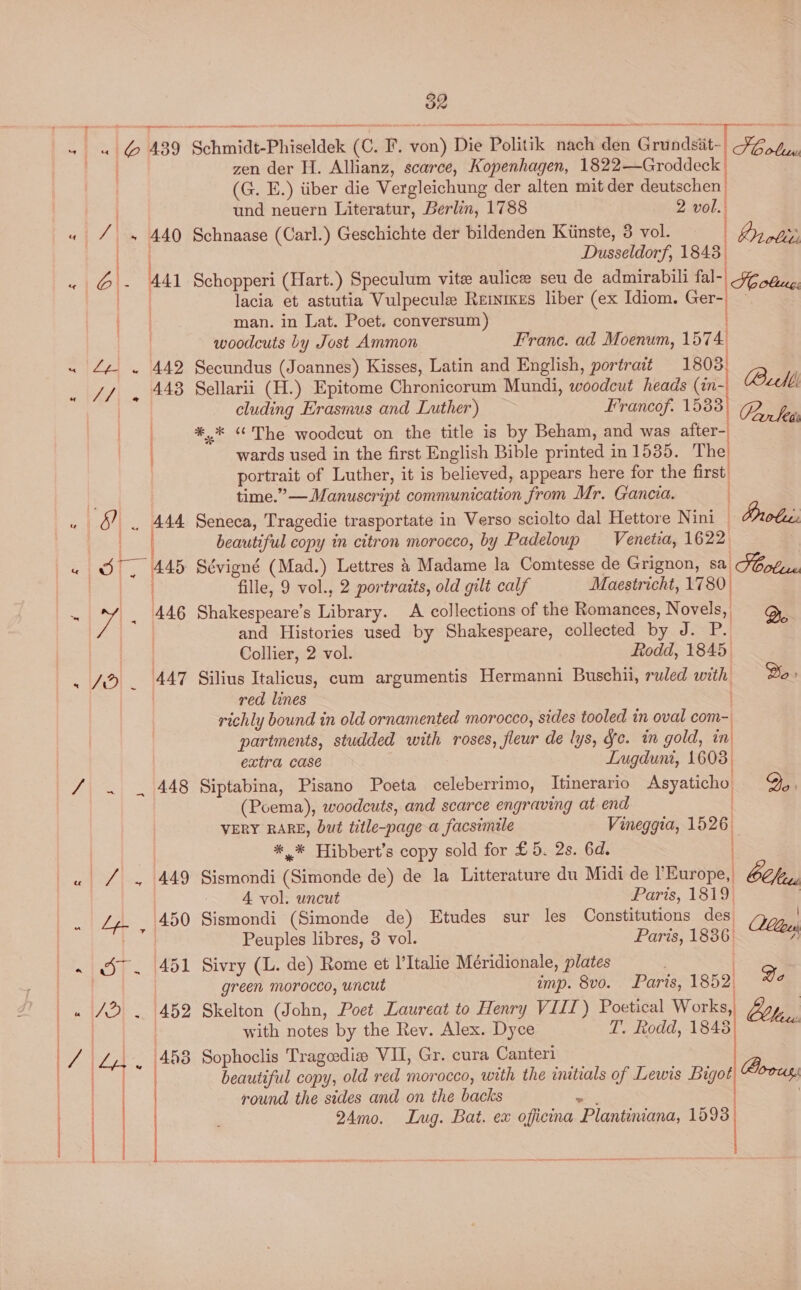 32
6 439 Schmidt-Phiseldek (C. F. von) Die Politik nach den Grundsät-
zen der H. Allianz, scarce, Kopenhagen, 1822—Groddeck
(G. E.) über die Vergleichung der alten mit der deutschen
und neuern Literatur, Berlin, 1788 2 vol.
1 440 Schnaase (Carl.) Geschichte der bildenden Künste, 3 vol.
Dusseldorf, 1843
6 441 Schopperi (Hart.) Speculum vitæ aulicæ seu de admirabili fal-
lacia et astutia Vulpeculæ REINIKES liber (ex Idiom. Ger-
man. in Lat. Poet. conversum)
woodcuts by Jost Ammon Franc. ad Moenum, 1574
4 442 Secundus (Joannes) Kisses, Latin and English, portrait 1803
11 443 Sellarii (H.) Epitome Chronicorum Mundi, woodcut heads (in-
cluding Erasmus and Luther) Francof. 1533
*** “The woodcut on the title is by Beham, and was after-
wards used in the first English Bible printed in 1535. The
portrait of Luther, it is believed, appears here for the first
time.”—Manuscript communication from Mr. Gancia.
444 Seneca, Tragedie trasportate in Verso sciolto dal Hettore Nini
beautiful copy in citron morocco, by Padeloup Venetia, 1622
5 445 Sévigné (Mad.) Lettres à Madame la Comtesse de Grignon, sa
fille, 9 vol., 2 portraits, old gilt calf Maestricht, 1780
7 446 Shakespeare’s Library. A collections of the Romances, Novels,
and Histories used by Shakespeare, collected by J. P.
Collier, 2 vol. Rodd, 1845
10 447 Silius Italicus, cum argumentis Hermanni Buschii, ruled with Do.
red lines
richly bound in old ornamented morocco, sides tooled in oval com-
partments, studded with roses, fleur de lys, &c. in gold, in
extra case Lugduni, 1603
1 448 Siptabina, Pisano Poeta celeberrimo, Itinerario Asyaticho Do.
(Poema), woodcuts, and scarce engraving at end
VERY RARE, but title-page a facsimile Vineggia, 1526
*** Hibbert’s copy sold for £ 5. 2s. 6d.
1 449 Sismondi (Simonde de) de la Litterature du Midi de l’Europe,
4 vol. uncut Paris, 1819
4 450 Sismondi (Simonde de) Etudes sur les Constitutions des
Peuples libres, 3 vol. Paris, 1836
5 451 Sivry (L. de) Rome et l’Italie Méridionale, plates
green morocco, uncut imp. 8vo. Paris, 1852 Do
10 452 Skelton (John, Poet Laureat to Henry VIII) Poetical Works,
with notes by the Rev. Alex. Dyce T. Rodd, 1843
1 4 453 Sophoclis Tragœdiæ VII, Gr. cura Canteri
beautiful copy, old red morocco, with the initials of Lewis Bigot
round the sides and on the backs
24mo. Lug. Bat. ex officina Plantiniana, 1593